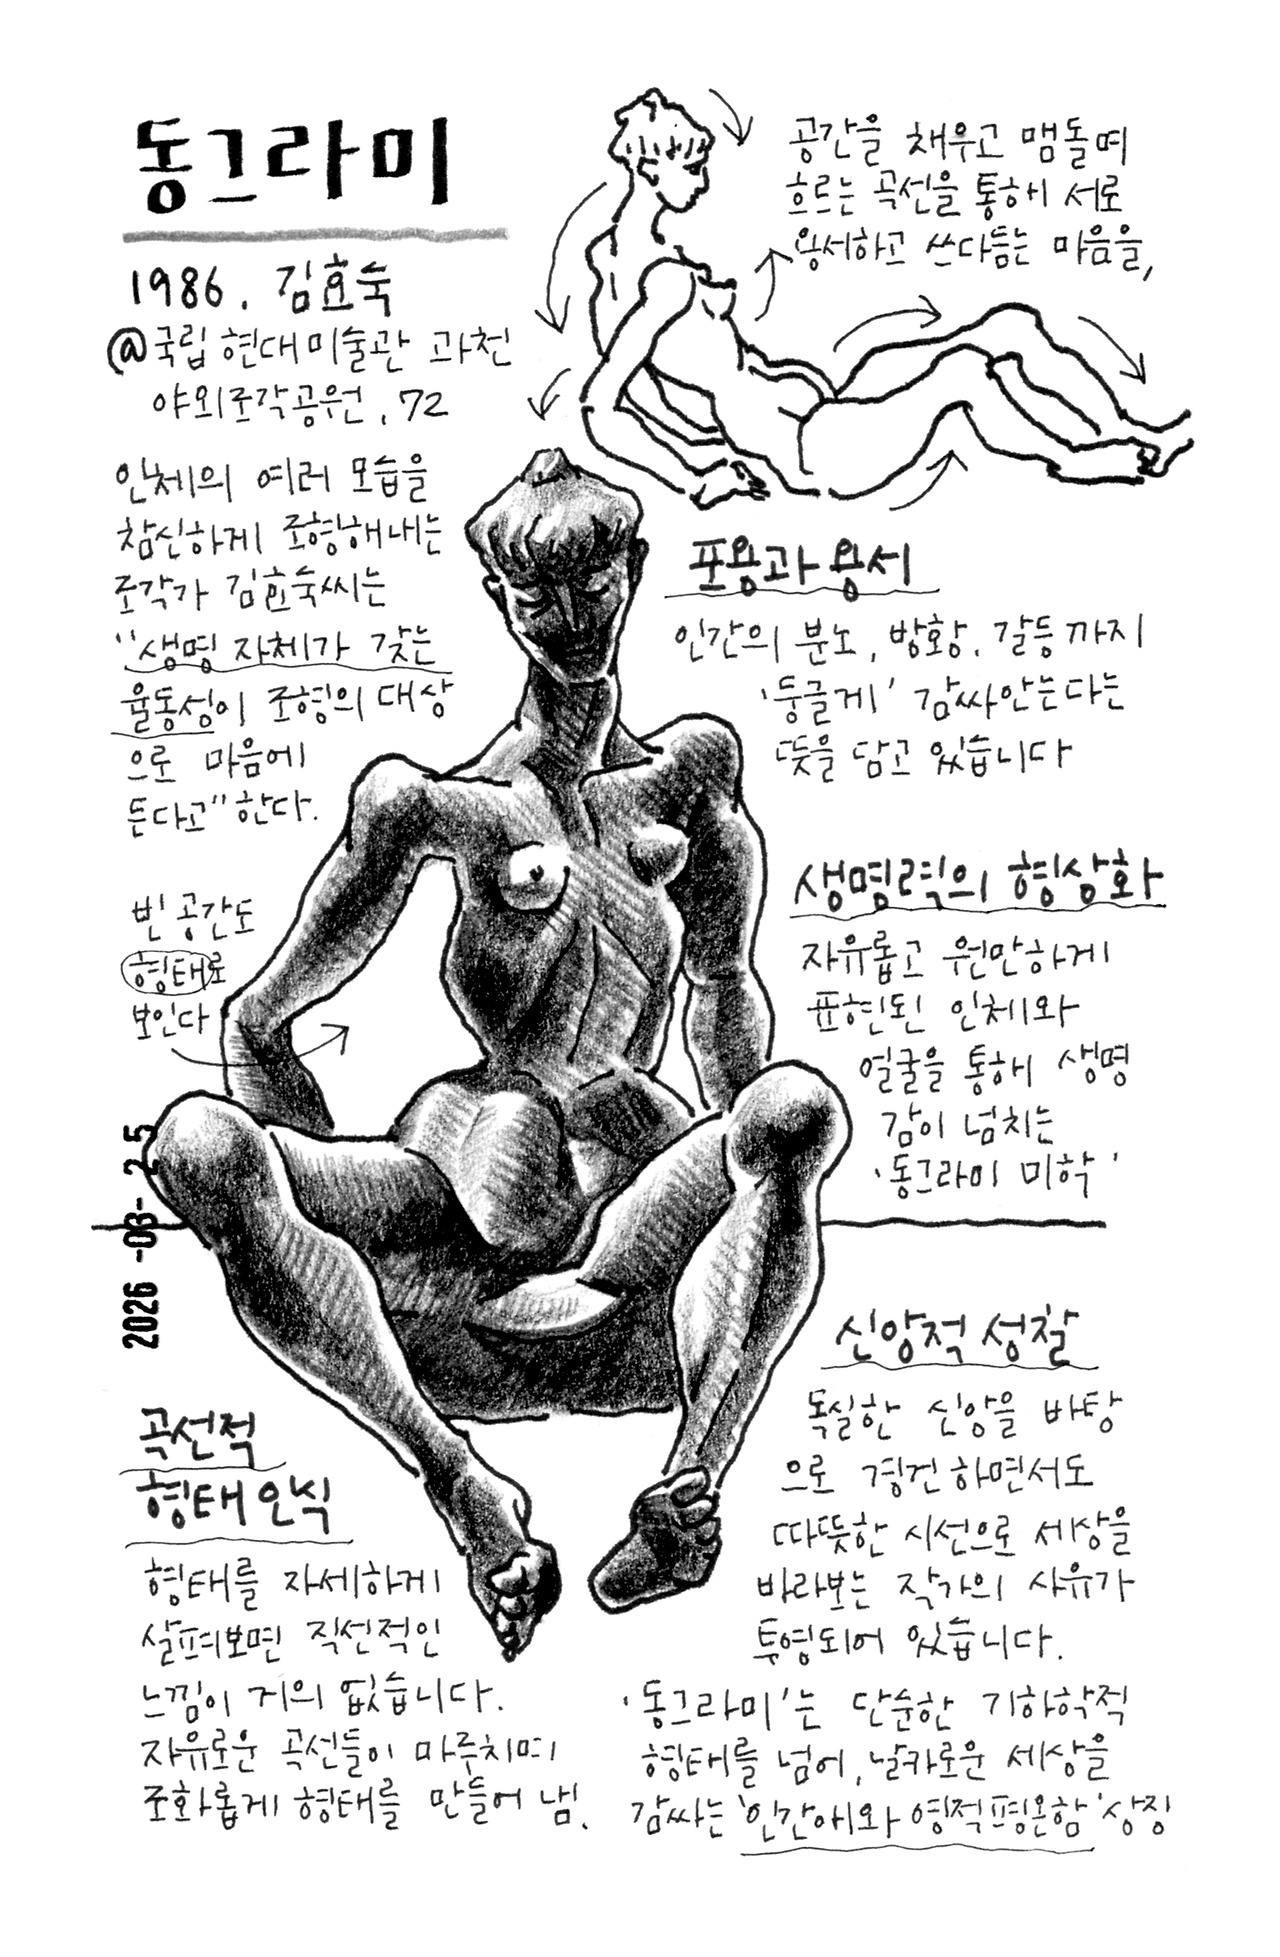 동그라미
1986. 김효숙
@국립현대미술관 과천
야외조각공원, 72
인체의 여러 모습을
참신하게 조형해내는
조각가 김효숙씨는
"생명 자체가 갖는
율동성이 조형의 대상
으로 마음에
든다고" 한다.
빈 공간도
형태로
보인다
공간을 채우고 맴돌며
흐르는 곡선을 통해 서로
용서하고 쓰다듬는 마음을,
포용과 용서
인간의 분노, 방황, 갈등까지
'둥글게' 감싸안는다는
뜻을 담고 있습니다
생명력의 형상화
자유롭고 원만하게
표현된 인체와
얼굴을 통해 생명
감이 넘치는
'동그라미 미학'
2026 -03- 25
신앙적 성찰
독실한 신앙을 바탕
으로 경건하면서도
따뜻한 시선으로 세상을
바라보는 작가의 사유가
투영되어 있습니다.
'동그라미'는 단순한 기하학적
형태를 넘어, 날카로운 세상을
감싸는 '인간애와 영적평온함' 상징
곡선적
형태 인식
형태를 자세하게
살펴보면 직선적인
느낌이 거의 없습니다.
자유로운 곡선들이 마주치며
조화롭게 형태를 만들어 냄.